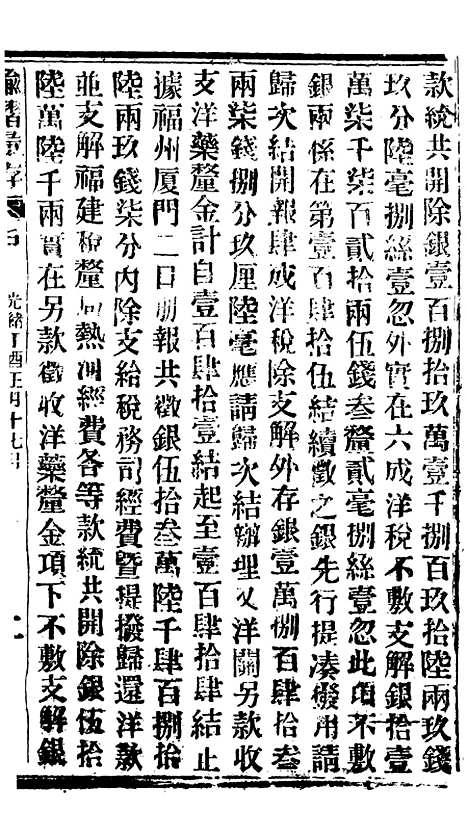 款統共開除銀壹百捌拾玖萬壹千捌百玖拾陸兩玖錢
玖分陸毫捌絲壹忽外實在六成洋稅不敷支解銀拾壹
萬柒千柒百貳拾兩伍錢叁釐貳毫捌絲壹忽此項不敷
銀兩係在第壹百肆拾伍結續徵之銀先行提湊撥用請
歸次結開報肆成洋稅除支解外存銀壹萬捌百肆拾叁
兩柒錢捌分玖厘陸毫應請歸次結辦理又洋關另款收
支洋藥釐金計自壹百肆拾壹結起至壹百肆拾肆結止
據福州厦門二口册報共徵銀伍拾叁萬陸千肆百捌拾
陸兩玖錢柒分內除支給稅務司經費曁提撥歸還洋款
並支解福建稅釐局熱河經費各等款統共開除銀伍拾
陸萬陸千兩實在另款徵收洋藥釐金項下不敷支解銀
諭摺彙存
光緒丁酉正月十七日